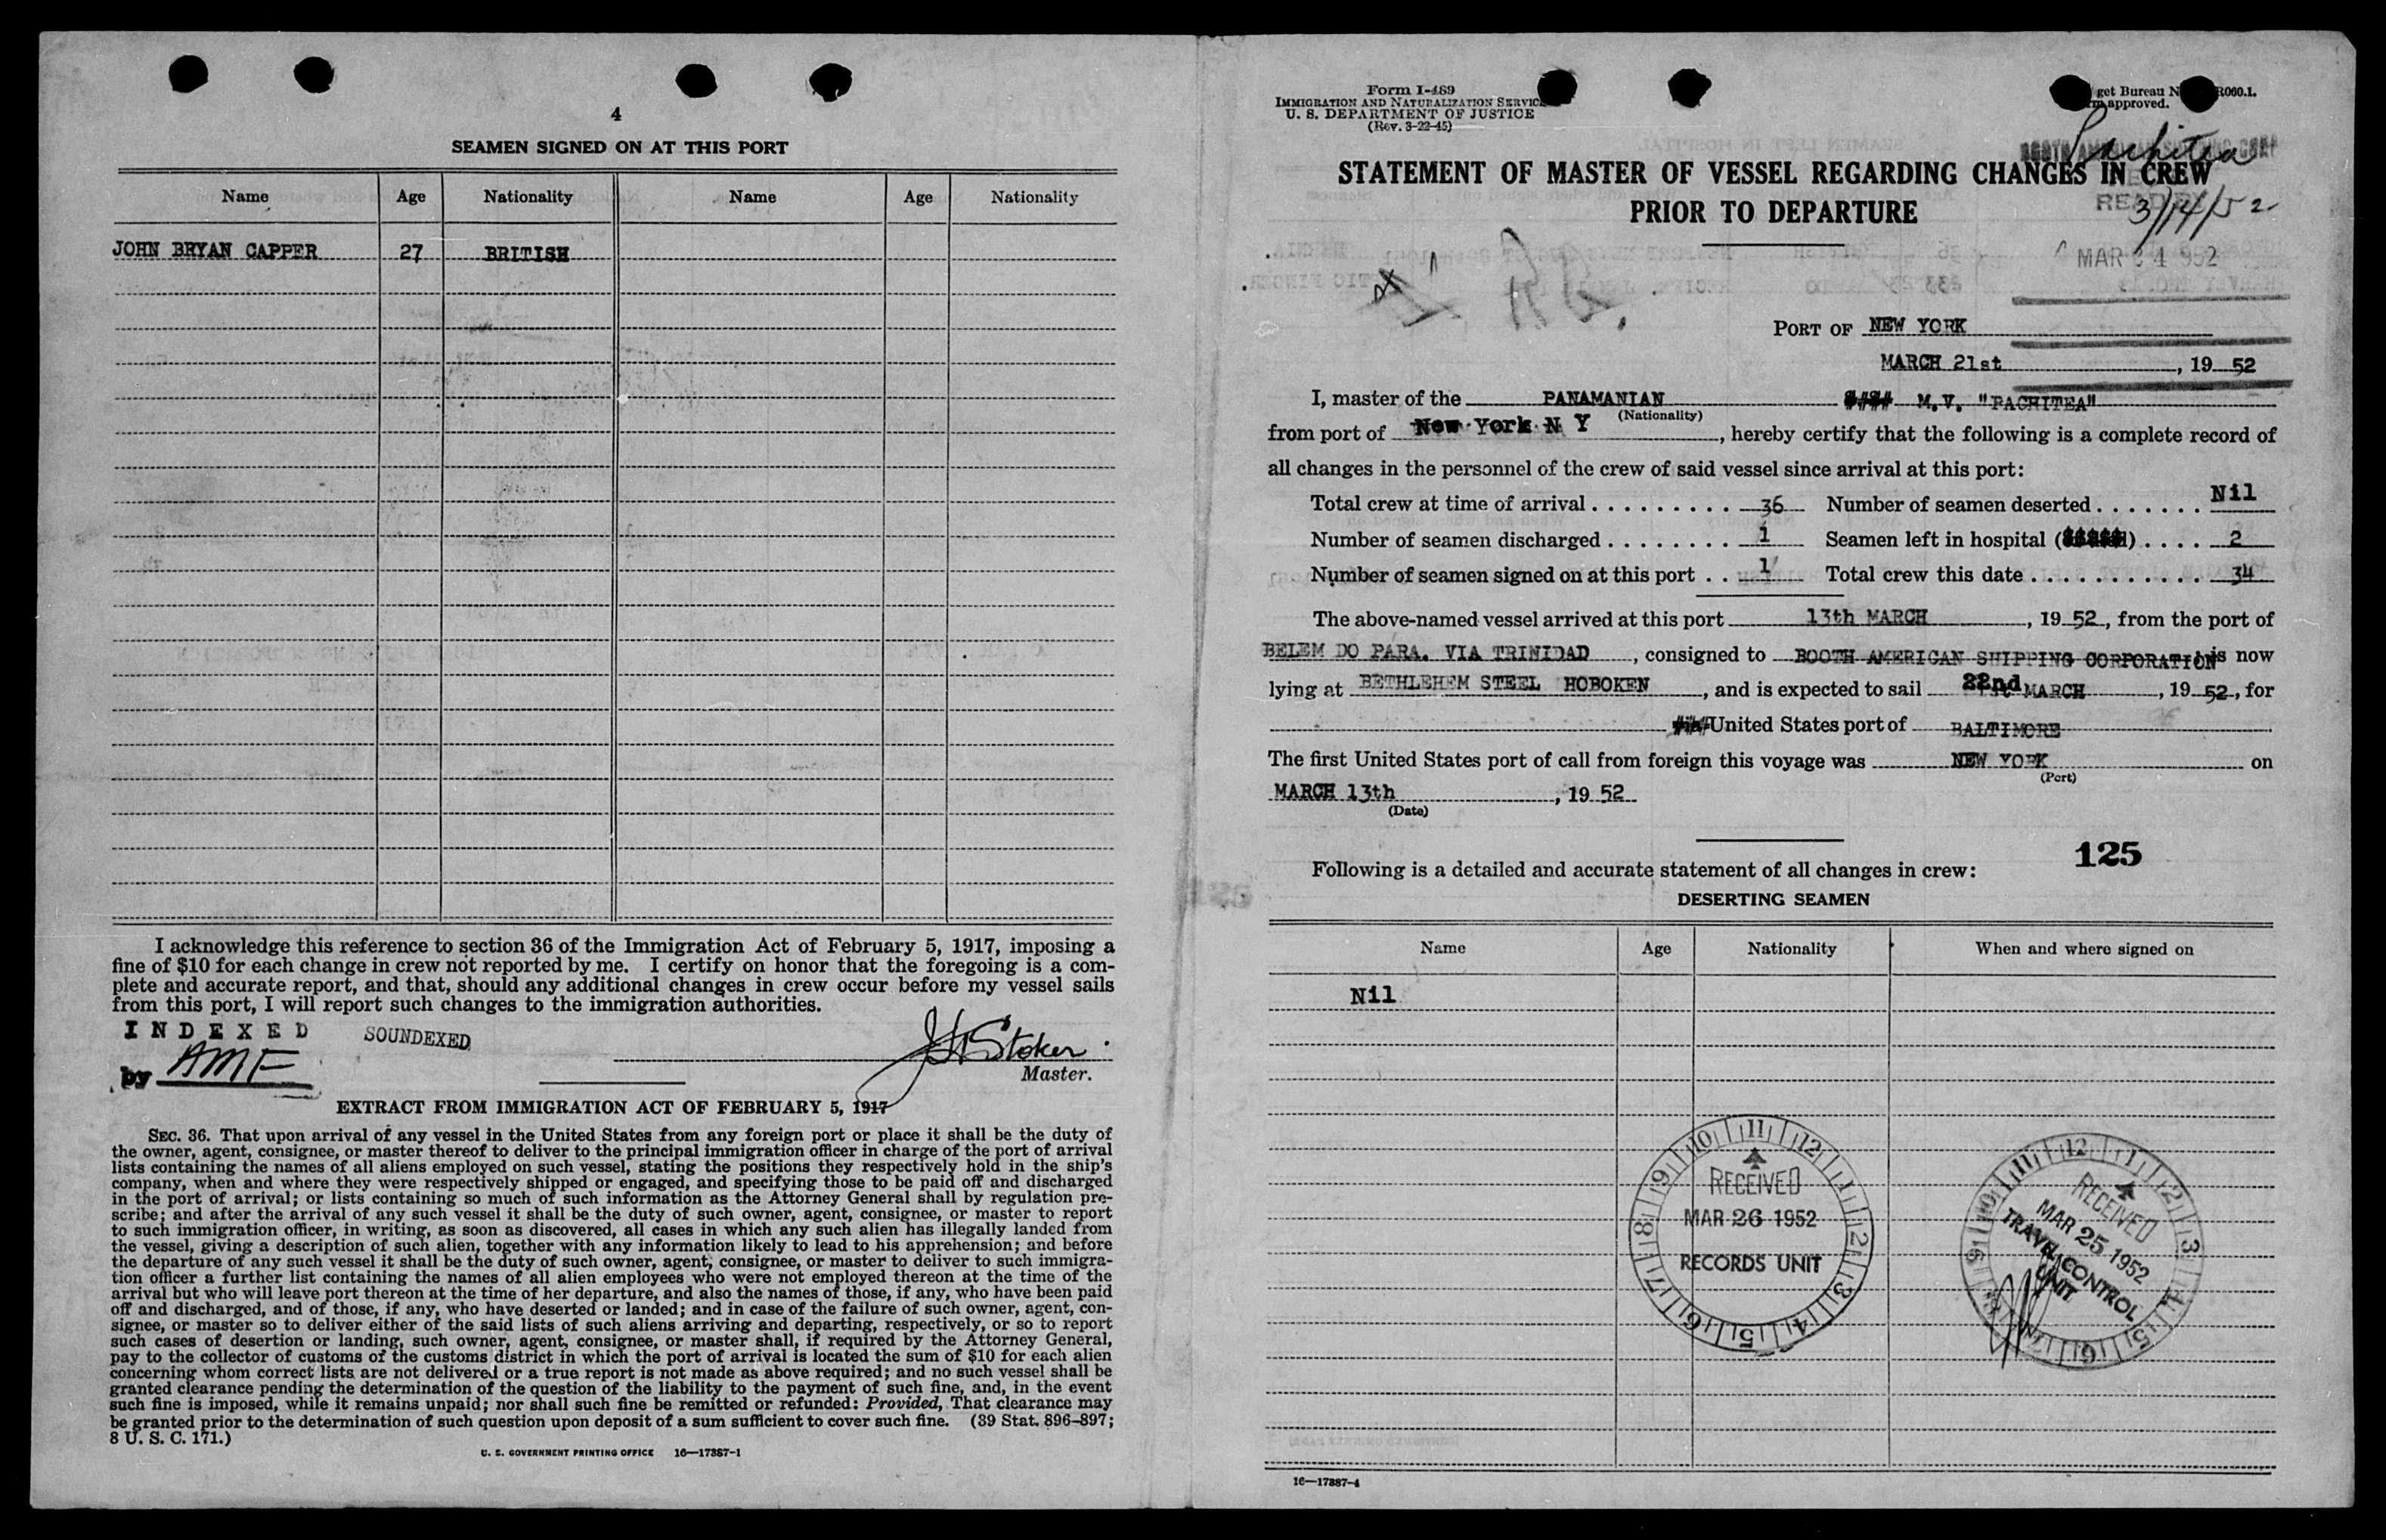 4
SEAMEN SIGNED ON AT THIS PORT
Name Age Nationality Name Age Nationality
JOHN BRYAN CAPPER 27 BRITISH
I acknowledge this reference to section 36 of the Immigration Act of February 5, 1917, imposing a
fine of $10 for each change in crew not reported by me. I certify on honor that the foregoing is a com-
plete and accurate report, and that, should any additional changes in crew occur before my vessel sails
from this port, I will report such changes to the immigration authorities.
INDEXED SOUNDEXED
by AMF
Stoker
Master.
EXTRACT FROM IMMIGRATION ACT OF FEBRUARY 5, 1917
SEC. 36. That upon arrival of any vessel in the United States from any foreign port or place it shall be the duty of
the owner, agent, consignee, or master thereof to deliver to the principal immigration officer in charge of the port of arrival
lists containing the names of all aliens employed on such vessel, stating the positions they respectively hold in the ship's
company, when and where they were respectively shipped or engaged, and specifying those to be paid off and discharged
in the port of arrival; or lists containing so much of such information as the Attorney General shall by regulation pre-
scribe; and after the arrival of any such vessel it shall be the duty of such owner, agent, consignee, or master to report
to such immigration officer, in writing, as soon as discovered, all cases in which any such alien has illegally landed from
the vessel, giving a description of such alien, together with any information likely to lead to his apprehension; and before
the departure of any such vessel it shall be the duty of such owner, agent, consignee, or master to deliver to such immigra-
tion officer a further list containing the names of all alien employees who were not employed thereon at the time of the
arrival but who will leave port thereon at the time of her departure, and also the names of those, if any, who have been paid
off and discharged, and of those, if any, who have deserted or landed; and in case of the failure of such owner, agent, con-
signee, or master so to deliver either of the said lists of such aliens arriving and departing, respectively, or so to report
such cases of desertion or landing, such owner, agent, consignee, or master shall, if required by the Attorney General,
pay to the collector of customs of the customs district in which the port of arrival is located the sum of $10 for each alien
concerning whom correct lists are not delivered or a true report is not made as above required; and no such vessel shall be
granted clearance pending the determination of the question of the liability to the payment of such fine, and, in the event
such fine is imposed, while it remains unpaid; nor shall such fine be remitted or refunded: Provided, That clearance may
be granted prior to the determination of such question upon deposit of a sum sufficient to cover such fine. (39 Stat. 896–897;
8 U. S. C. 171.)
U. S. GOVERNMENT PRINTING OFFICE 16—17387-1
Form I-489
IMMIGRATION AND NATURALIZATION SERVICE
U. S. DEPARTMENT OF JUSTICE
(Rev. 3-22-45)
get Bureau N R060.1.
approved.
Pachitea
STATEMENT OF MASTER OF VESSEL REGARDING CHANGES IN CREW
PRIOR TO DEPARTURE
3/14/52
MAR 24 952
PORT OF NEW YORK
MARCH 21st, 19 52
I, master of the PANAMANIAN M.V. "PACHITEA"
(Nationality)
from port of New York N Y, hereby certify that the following is a complete record of
all changes in the personnel of the crew of said vessel since arrival at this port:
Total crew at time of arrival . . . . . . . . . 36 Number of seamen deserted . . . . . . . Nil
Number of seamen discharged . . . . . . . . 1 Seamen left in hospital ( ) . . . . 2
Number of seamen signed on at this port . . 1 Total crew this date . . . . . . . . . . . . 34
The above-named vessel arrived at this port 13th MARCH, 19 52, from the port of
BELEM DO PARA. VIA TRINIDAD, consigned to BOOTH AMERICAN SHIPPING CORPORATION is now
lying at BETHLEHEM STEEL HOBOKEN, and is expected to sail 22nd MARCH, 19 52, for
United States port of BALTIMORE
The first United States port of call from foreign this voyage was NEW YORK on
(Port)
MARCH 13th, 19 52
(Date)
125
Following is a detailed and accurate statement of all changes in crew:
DESERTING SEAMEN
Name Age Nationality When and where signed on
Nil
RECEIVED
MAR 26 1952
RECORDS UNIT
RECEIVED
MAR 25 1952
TRAVEL CONTROL
UNIT
16—17387-4